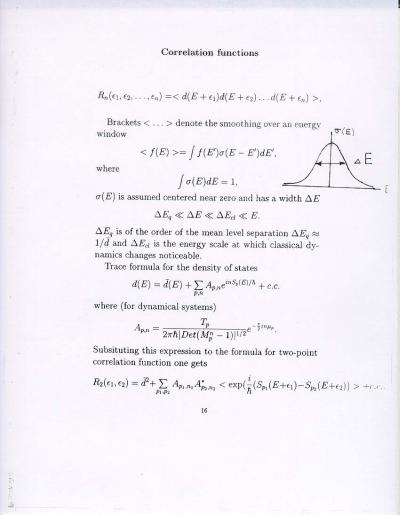 Correlation functions
Rₙ(ϵ₁, ϵ₂, . . . , ϵₙ) =< d(E + ϵ₁)d(E + ϵ₂) . . . d(E + ϵₙ) >,
Brackets < . . . > denote the smoothing over an energy
window
σ(E)
< f(E) >= ∫ f(E′)σ(E − E′)dE′,
ΔE
where
∫ σ(E)dE = 1,
E
σ(E) is assumed centered near zero and has a width ΔE
ΔE_q ≪ ΔE ≪ ΔE_cl ≪ E.
ΔE_q is of the order of the mean level separation ΔE_q ≈
1/d̄ and ΔE_cl is the energy scale at which classical dy-
namics changes noticeable.
Trace formula for the density of states
d(E) = d̄(E) + ∑_{p,n} A_{p,n}e^{inS_p(E)/ħ} + c.c.
where (for dynamical systems)
A_{p,n} = T_p / (2πħ|Det(M_p^n − 1)|^{1/2}) e^{−(π/2)inμ_p}.
Subsituting this expression to the formula for two-point
correlation function one gets
R₂(ϵ₁, ϵ₂) = d̄² + ∑_{p₁,p₂} A_{p₁,n₁}A*_{p₂,n₂} < exp(i/ħ(S_{p₁}(E+ϵ₁)−S_{p₂}(E+ϵ₂)) > +c.c.
16